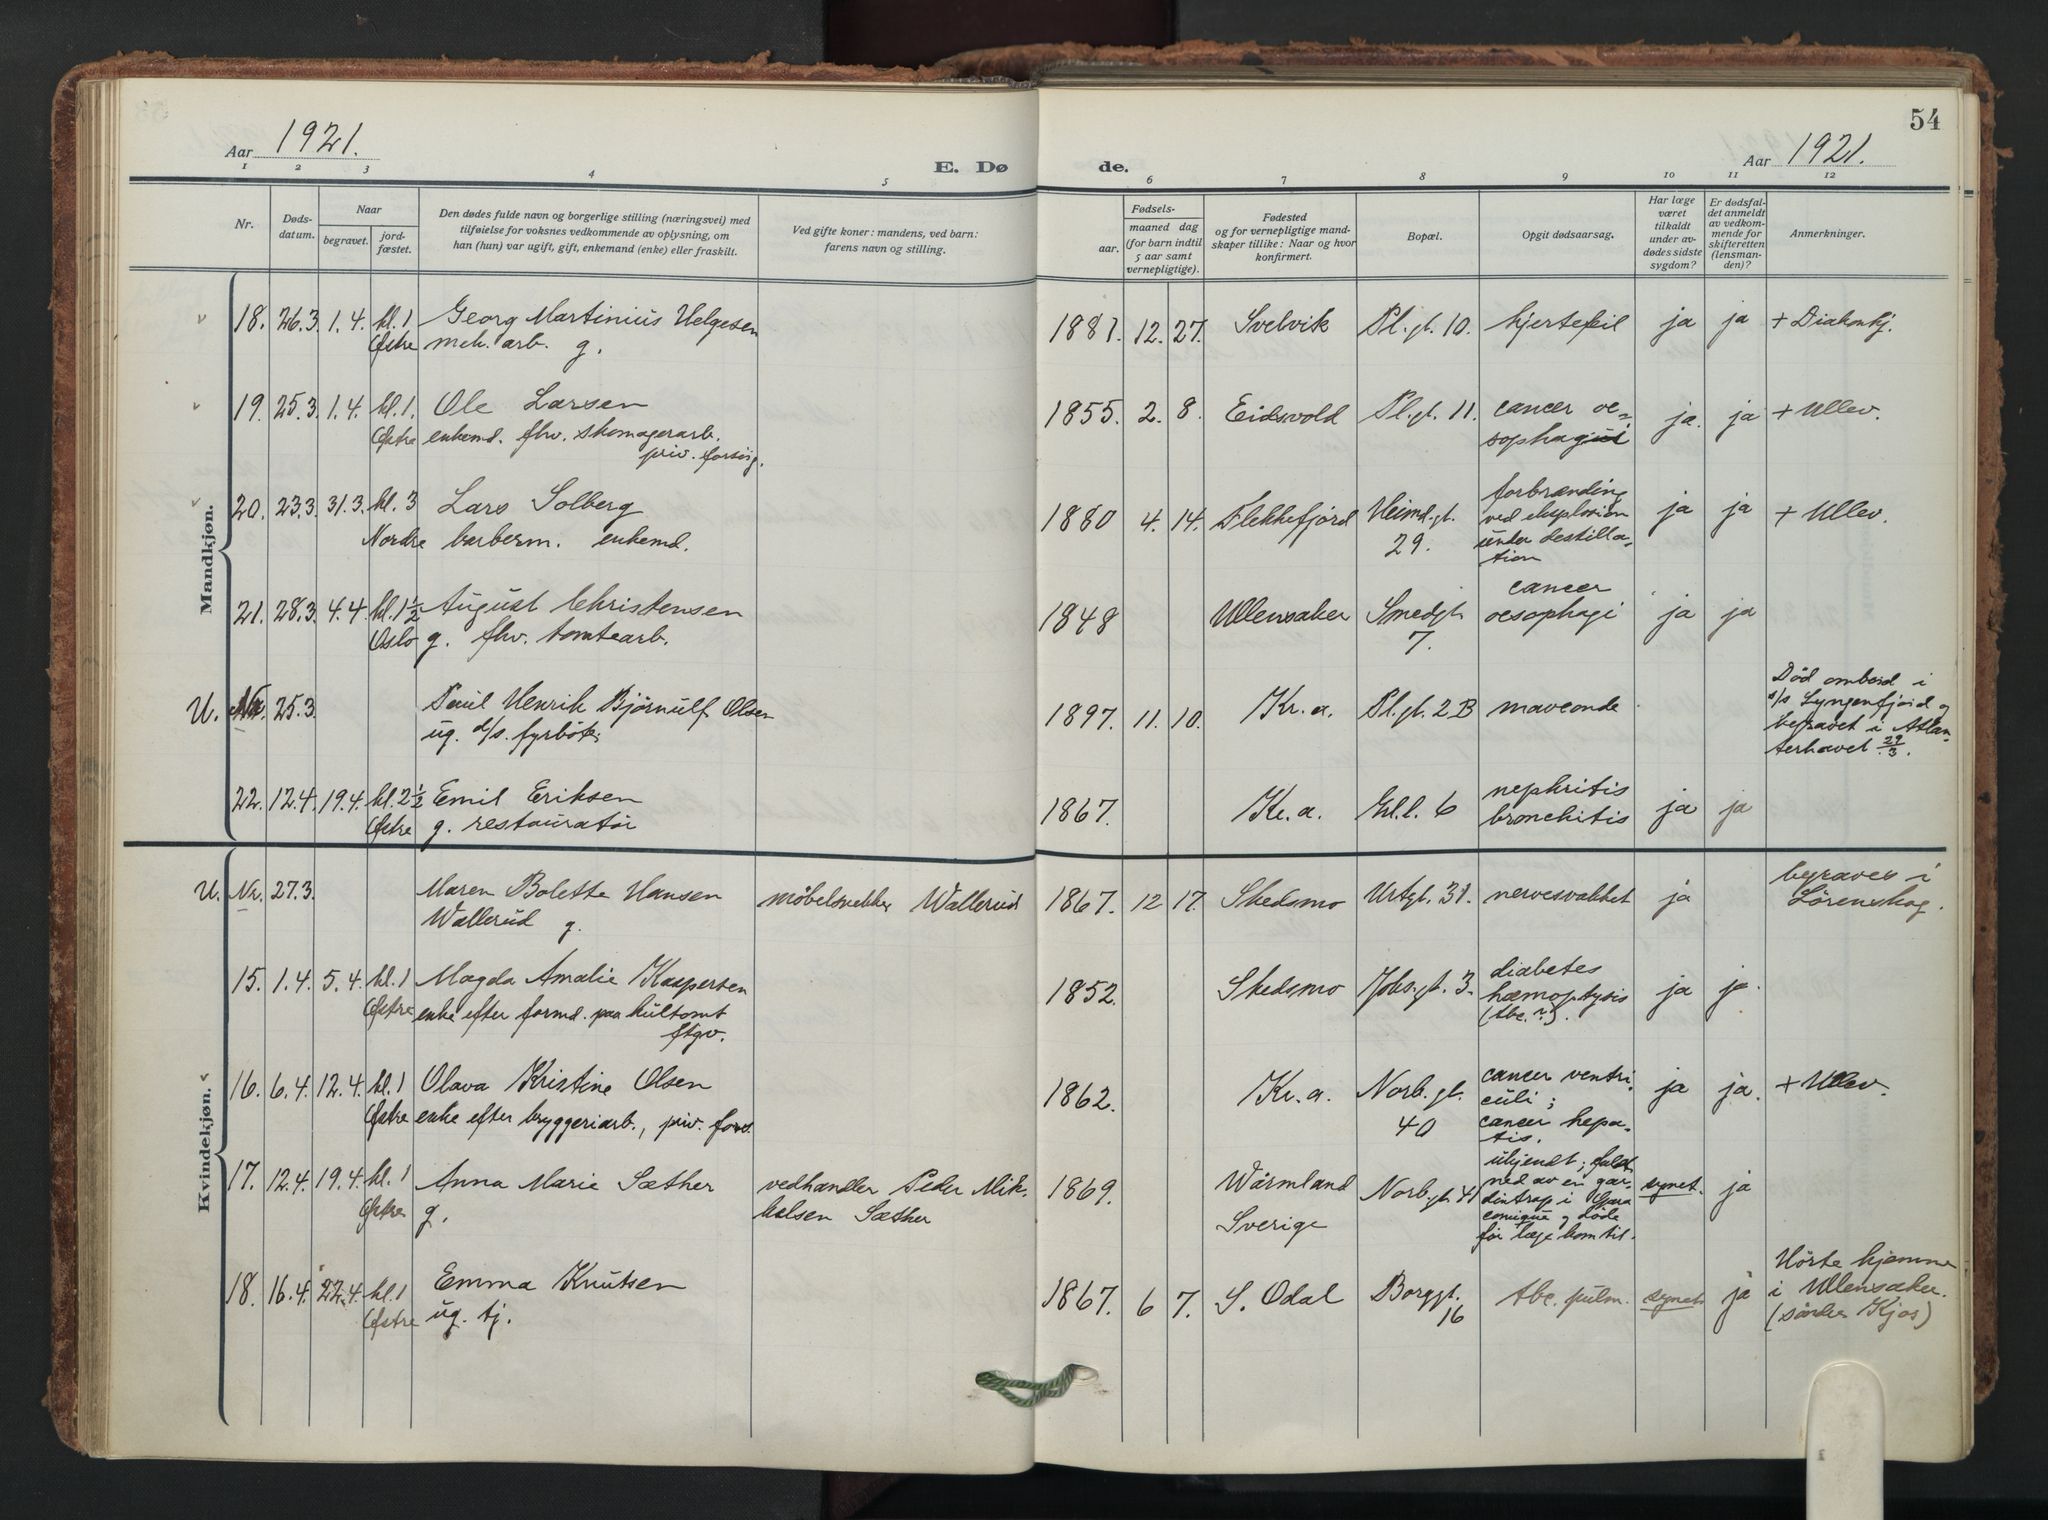 54
Aar 1921.
E. Døde.
Aar 1921.
1 2 3 4 5 6 7 8 9 10 11 12
Nr.
Døds-
datum.
Naar
begravet.
jord-
fæstet.
Den dødes fulde navn og borgerlige stilling (næringsvei) med
tilføielse for voksnes vedkommende av oplysning, om
han (hun) var ugift, gift, enkemand (enke) eller fraskilt.
Ved gifte koner: mandens, ved barn:
farens navn og stilling.
Fødsels-
aar. maaned dag
(for barn indtil
5 aar samt
vernepligtige).
Fødested
og for vernepligtige mand-
skaper tillike: Naar og hvor
konfirmert.
Bopæl.
Opgit dødsaarsag.
Har læge
været
tilkaldt
under av-
dødes sidste
sygdom?
Er dødsfal-
det anmeldt
av vedkom-
mende for
skifteretten
(lensman-
den)?
Anmerkninger.
Mandkjøn.
18. 26.3. 1.4. kl. 1 Georg Martinius Helgesen 1881. 12. 27. Svelvik Pl.gt. 10. hjertefeil ja ja + Diakonhj.
Østre mek. arb. g.
19. 25.3. 1.4. kl. 1. Ole Larsen 1855. 2. 8. Eidsvold Pl.gt. 11. cancer oe- ja. ja + Ullev.
Østre enkemd. fhv. skomagerarb. sophagus
priv. forsørg.
20. 23.3. 31.3. kl. 3 Lars Solberg 1880 4. 14. Flekkefjord Heimd.gt. forbrænding ja ja + Ullev.
Nordre barberm. enkemd. 29. ved eksplosion
under destilla-
tion
21. 28.3. 4.4. kl. 1½ August Christensen 1848 Ullensaker Smedgt. cancer ja ja
Oslo g. fhv. tomtearb. 7. oesophagi
U. Nr. 25.3. Paul Henrik Bjørnulf Olsen 1897. 11. 10. Kr.a. Pl.gt. 2B maveonde Død ombord i
ug. d/s. fyrbøter s/s Lyngenfjord og
begravet i Atlan-
terhavet 29/3.
22. 12.4. 19.4. kl. 2½ Emil Eriksen 1867. Kr.a. Grl.l. 6 nephritis ja ja
Østre g. restauratør bronchitis
Kvindekjøn.
U. Nr. 27.3. Maren Bolette Hansen møbelsnekker Wallerud 1867. 12 17. Skedsmo Urtgt. 31. nervesvakhet ja begraves i
Wallerud g. Lørenskog.
15. 1.4. 5.4. kl. 1 Magda Amalie Kaspersen 1852. Skedsmo Jobs.gt. 3. diabetes ja ja.
Østre enke efter formd. paa kullomt hæmoptysis
ftgv. (tbc.?).
16. 6.4. 12.4. kl. 1 Olava Kristine Olsen 1862. Kr.a. Norb.gt. cancer ventri- ja ja. + Ullev.
Østre enke efter bryggeriarb., priv. fors. 40 culi;
cancer hepa-
tis.
17. 12.4. 19.4. kl. 1 Anna Marie Sæther vedhandler Peder Mik- 1869. Wärmland Norb.gt. 41 ukjendt; faldt synet. ja
Østre g. kelsen Sæther Sverige ned av en gar-
dintrap i Opera
comique og døde
før læge kom til.
18. 16.4. 22.4. kl. 1 Emma Knutsen 1867. 6 7. S. Odal Borggt. tbc. pulm. synet ja Hørte hjemme
Østre ug. tj. 16 i Ullensaker.
(søndre Kjos)